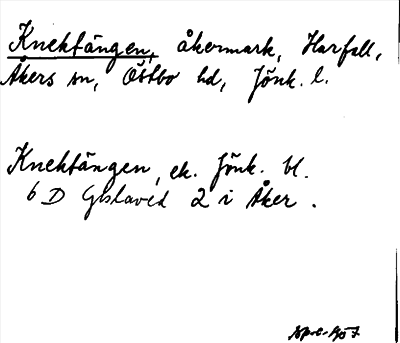 Knektängen, åkermark, Harfall,
Åkers sn, Östbo hd, Jönk. l.
Knektängen, ek. Jönk. bl.
6 D Gislaved 2 i Åker.